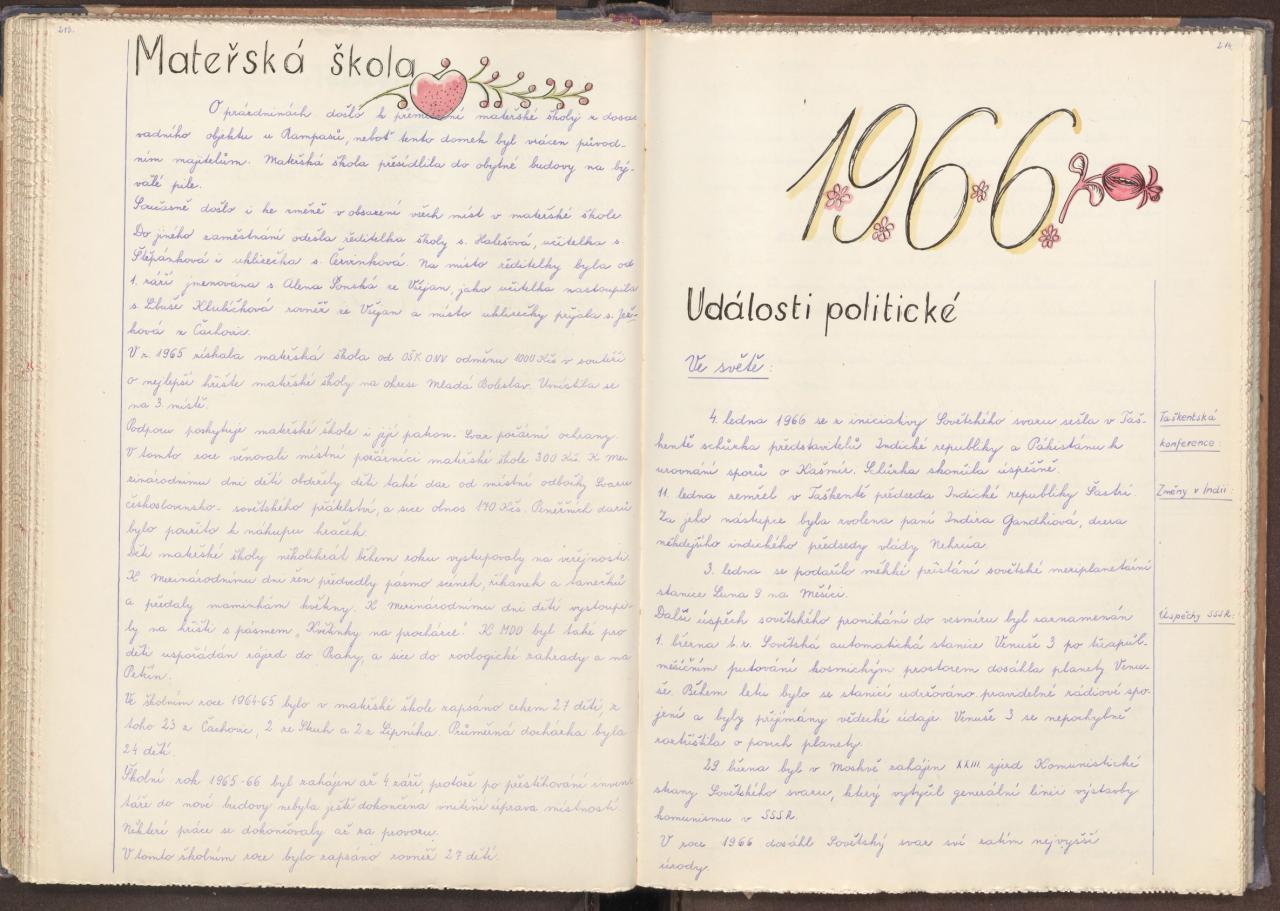 213.
Mateřská škola
O prázdninách došlo k přemístění mateřské školy z dosa-
vadního objektu u Rampasů, neboť tento domek byl vrácen původ-
ním majitelům. Mateřská škola přesídlila do obytné budovy na bý-
valé pile.
Současně došlo i ke změně v obsazení všech míst v mateřské škole.
Do jiného zaměstnání odešla ředitelka školy s. Halešová, učitelka s.
Štěpánková i uklízečka s. Červinková. Na místo ředitelky byla od
1. září jmenována s. Alena Šonská ze Všejan, jako učitelka nastoupila
s. Libuše Klubíčková rovněž ze Všejan a místo uklízečky přijala s.
ková z Čachovic.
V r. 1965 získala mateřská škola od OŠK ONV odměnu 1000 Kčs v soutěži
o nejlepší hřiště mateřské školy na okrese Mladá Boleslav. Umístila se
na 3. místě.
Podporu poskytuje mateřské škole i její patron - Svaz požární ochrany.
V tomto roce věnovali místní požárníci mateřské škole 300 Kčs. K Me-
zinárodnímu dni dětí obdržely děti také dar od místní odbočky Svazu
československo-sovětského přátelství, a sice obnos 140 Kčs. Peněžních darů
bylo použito k nákupu hraček.
Děti mateřské školy několikrát během roku vystupovaly na veřejnosti.
K Mezinárodnímu dni žen předvedly pásmo scének, říkanek a tanečků
a předaly maminkám květiny. K Mezinárodnímu dni dětí vystoupi-
ly na hřišti s pásmem „Květinky na procházce. K MDD byl také pro
děti uspořádán zájezd do Prahy, a sice do zoologické zahrady a na
Petřín.
Ve školním roce 1964-65 bylo v mateřské škole zapsáno celkem 27 dětí, z
toho 23 z Čachovic, 2 ze Struh a 2 z Lipníka. Průměrná docházka byla
24 dětí.
Školní rok 1965-66 byl zahájen až 4. září, protože po přestěhování inven-
táře do nové budovy nebyla ještě dokončena vnitřní úprava místností.
Některé práce se dokončovaly až za provozu.
V tomto školním roce bylo zapsáno rovněž 27 dětí.
214.
1966
Události politické
Ve světě:
4. ledna 1966 se z iniciativy Sovětského svazu sešla v Taš-
kentě schůzka představitelů Indické republiky a Pákistánu k
urovnání sporů o Kašmír. Schůzka skončila úspěšně.
11. ledna zemřel v Taškentě předseda Indické republiky Šastri.
Za jeho nástupce byla zvolena paní Indira Gandhiová, dcera
někdejšího indického předsedy vlády Nehrúa.
3. ledna se podařilo měkké přistání sovětské meziplanetární
stanice Luna 9 na Měsíci.
Další úspěch sovětského pronikání do vesmíru byl zaznamenán
1. března t.r. Sovětská automatická stanice Venuše 3 po třapůl-
měsíčním putování kosmickým prostorem dosáhla planety Venu-
še. Během letu bylo se stanicí udržováno pravidelné rádiové spo-
jení a byly přijímány vědecké údaje. Venuše 3 se nepochybně
roztříštila o povrch planety.
29. března byl v Moskvě zahájen XXIII. sjezd Komunistické
strany Sovětského svazu, který vytyčil generální linii výstavby
komunismu v SSSR.
V roce 1966 dosáhl Sovětský svaz své zatím nejvyšší
úrody.
Taškentská
konference:
Změny v Indii:
Úspěchy SSSR: